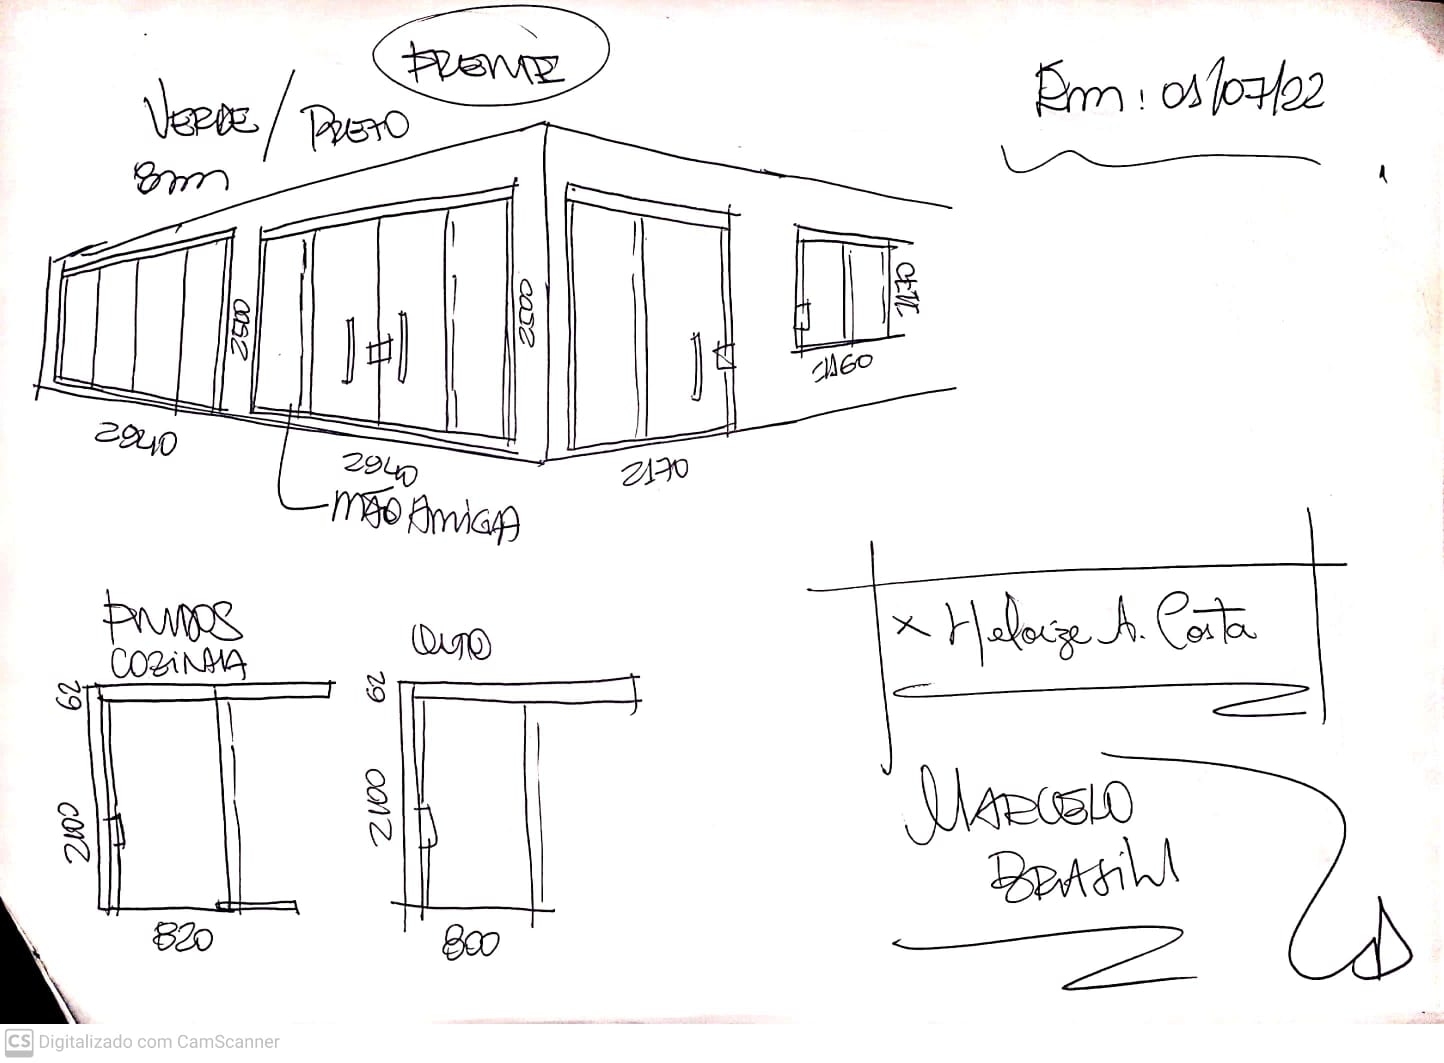 FRENTE
VERDE / PRETO
8mm
Em: 01/07/22
2500
2500
1160
2940
2940
2170
MÃO AMIGA
FUNDOS
COZINHA
62
2100
820
62
2100
800
x Heloize A. Costa
MARCELO
BRASIL
CS Digitalizado com CamScanner